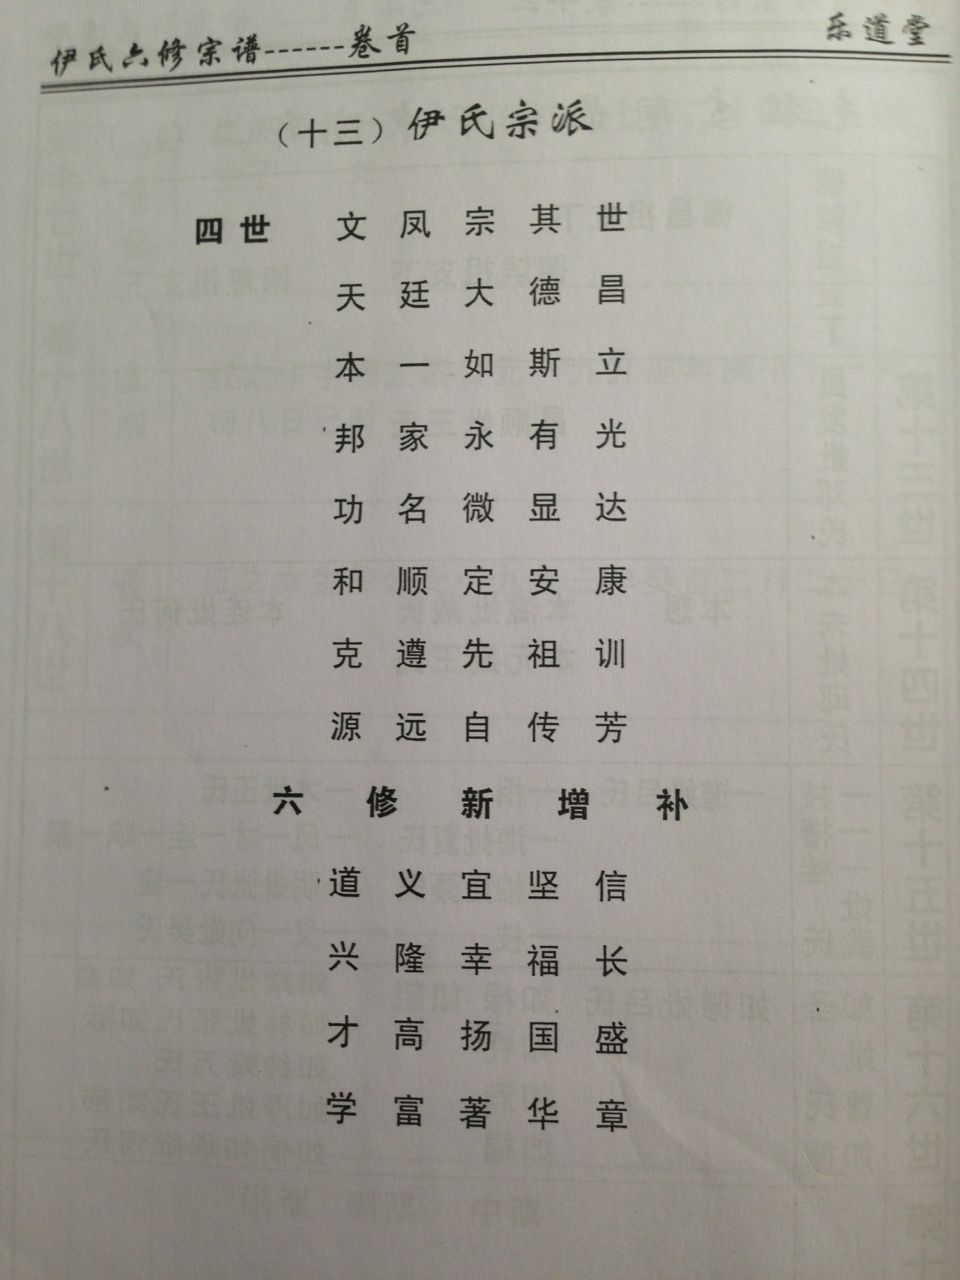 伊氏六修宗谱------卷首 乐道堂
（十三）伊氏宗派
四世 文凤宗其世
天廷大德昌
本一如斯立
邦家永有光
功名微显达
和顺定安康
克遵先祖训
源远自传芳
六修新增补
道义宜坚信
兴隆幸福长
才高扬国盛
学富著华章